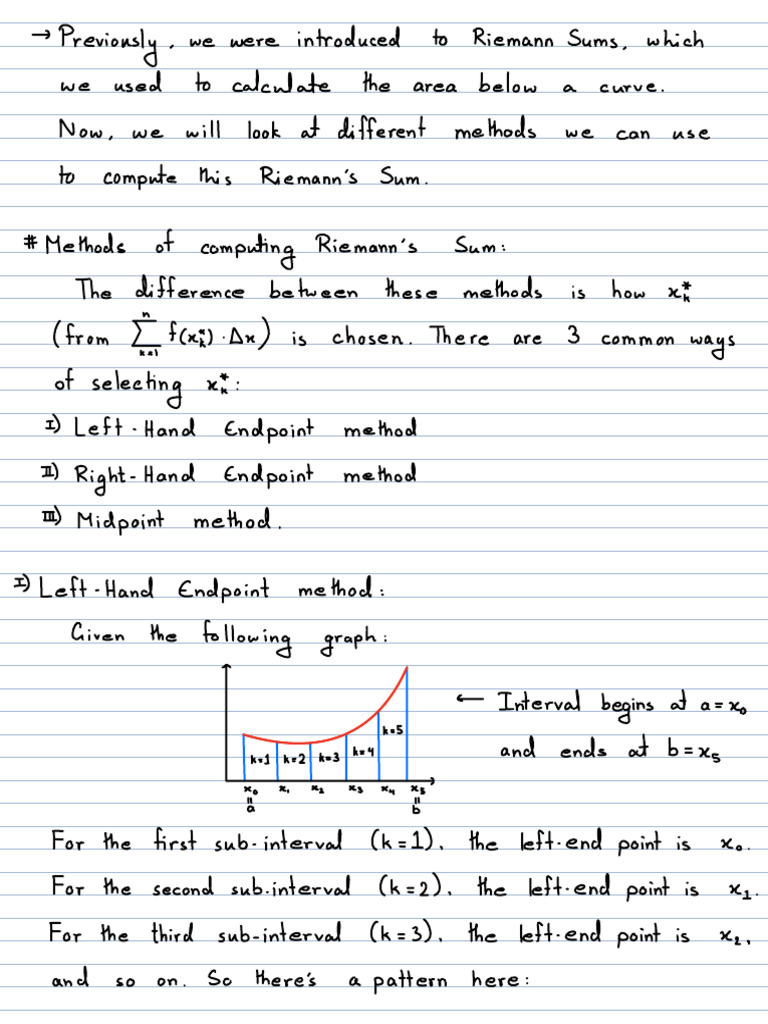 → Previously, we were introduced to Riemann Sums, which
we used to calculate the area below a curve.
Now, we will look at different methods we can use
to compute this Riemann's Sum.
# Methods of computing Riemann's Sum:
The difference between these methods is how xₖ*
(from ∑ₖ₌₁ⁿ f(xₖ*)·Δx) is chosen. There are 3 common ways
of selecting xₖ*:
I) Left-Hand Endpoint method
II) Right-Hand Endpoint method
III) Midpoint method.
I) Left-Hand Endpoint method:
Given the following graph:
← Interval begins at a = x₀
and ends at b = x₅
k=1 k=2 k=3 k=4 k=5
x₀ x₁ x₂ x₃ x₄ x₅
= =
a b
For the first sub-interval (k=1), the left-end point is x₀.
For the second sub-interval (k=2), the left-end point is x₁.
For the third sub-interval (k=3), the left-end point is x₂,
and so on. So there's a pattern here: